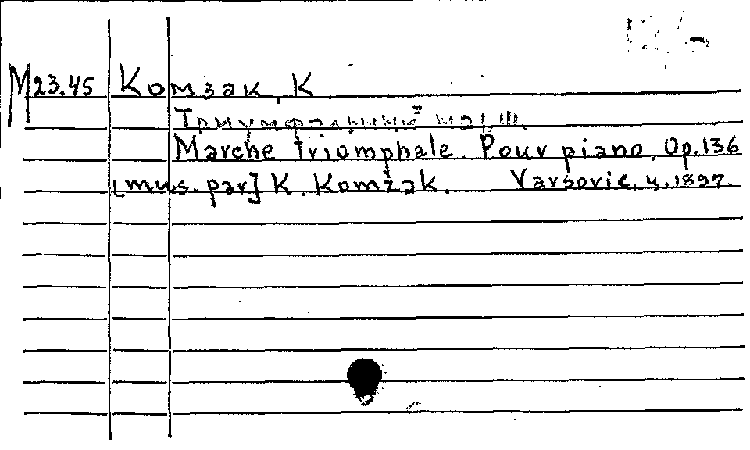 M23.45 Комзак, К
Триумфальный марш.
Marche triomphale. Pour piano. Op.136
[mus. par] K. Komžak. Varsovie, 4.1897